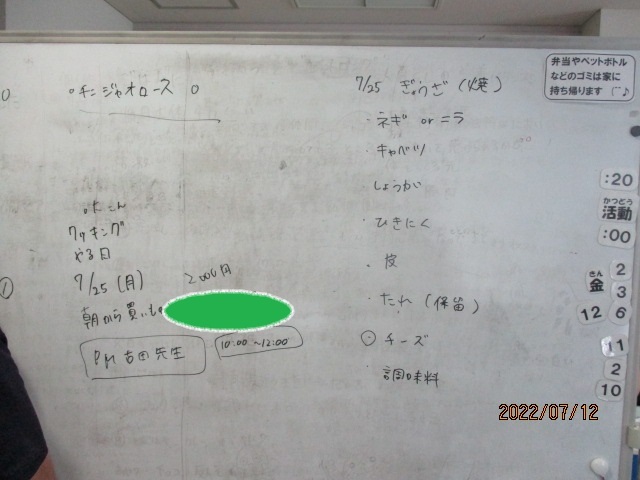 チンジャオロース
クッキング
やる日
7/25(月)
2000円
朝から買いもの
PM 吉田先生
10:00~12:00
7/25 ぎょうざ(焼)
・ネギ or ニラ
・キャベツ
・しょうが
・ひきにく
・皮
・たれ(保留)
チーズ
・調味料
弁当やペットボトル
などのゴミは家に
持ち帰ります
:20
かつどう
活動
:00
きん
金
2
3
12
6
11
2
10
2022/07/12